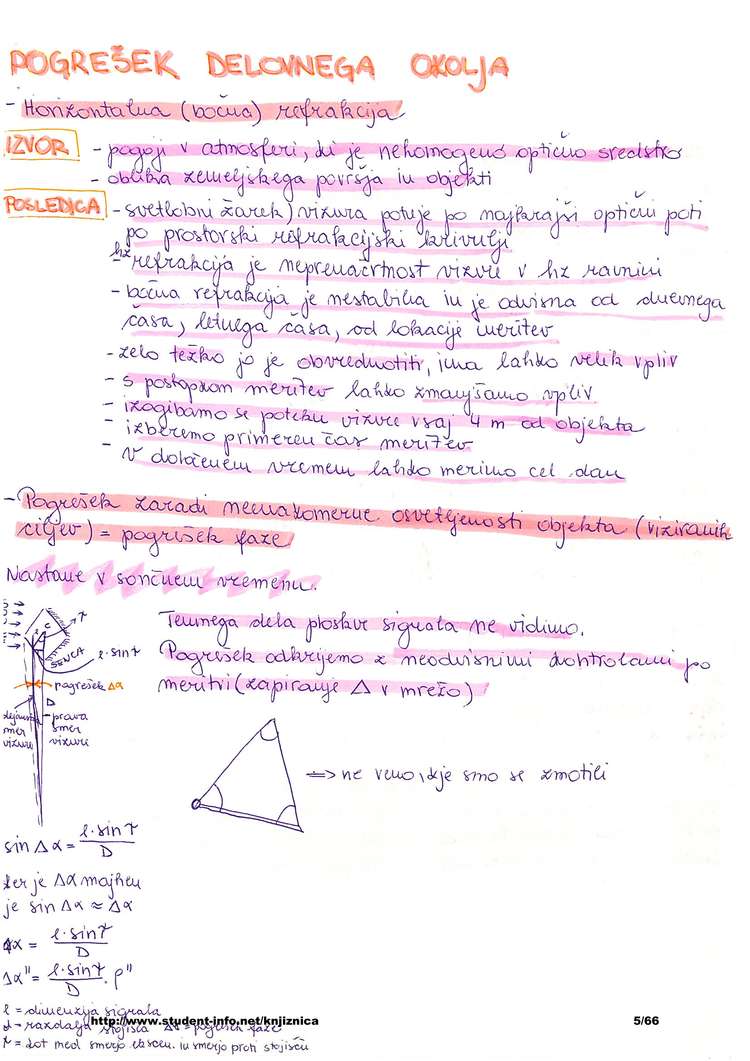 POGREŠEK DELOVNEGA OKOLJA
- Horizontalna (bočna) refrakcija
IZVOR - pogoji v atmosferi, ki je nehomogeno optično sredstvo
- oblika zemeljskega površja in objekti
POSLEDICA - svetlobni žarek) vizura potuje po najkrajši optični poti
po prostorski refrakcijski krivulji
- hz refrakcija je nepremačrtnost vizure v hz ravnini
- bočna refrakcija je nestabilna in je odvisna od dnevnega
časa, letnega časa, od lokacije meritev
- zelo težko jo je obvrednotiti, ima lahko velik vpliv
- s postopkom meritev lahko zmanjšamo vpliv
- izogibamo se poteku vizure vsaj 4 m od objekta
- izberemo primeren čas meritev
- v določenem vremenu lahko merimo cel dan
- Pogrešek zaradi neenakomerne osvetljenosti objekta (viziranih
ciljev) = pogrešek faze
Nastane v sončnem vremenu.
Temnega dela ploskve signala ne vidimo.
Pogrešek odkrijemo z neodvisnimi kontrolami po
meritvi (zapiranje Δ v mrežo)
SENCA
r·sinτ
pogrešek Δα
D
dejanska smer vizure
prava smer vizure
=> ne vemo, kje smo se zmotili
sin Δα = r·sinτ / D
ker je Δα majhen
je sin Δα ≈ Δα
Δα = r·sinτ / D
Δα" = r·sinτ / D · ρ"
r = dimenzija signala
d - razdalja stojišča Δα = pogrešek faze
τ = kot med smerjo in smerjo proti stojišču
http://www.student-info.net/knjiznica
5/66